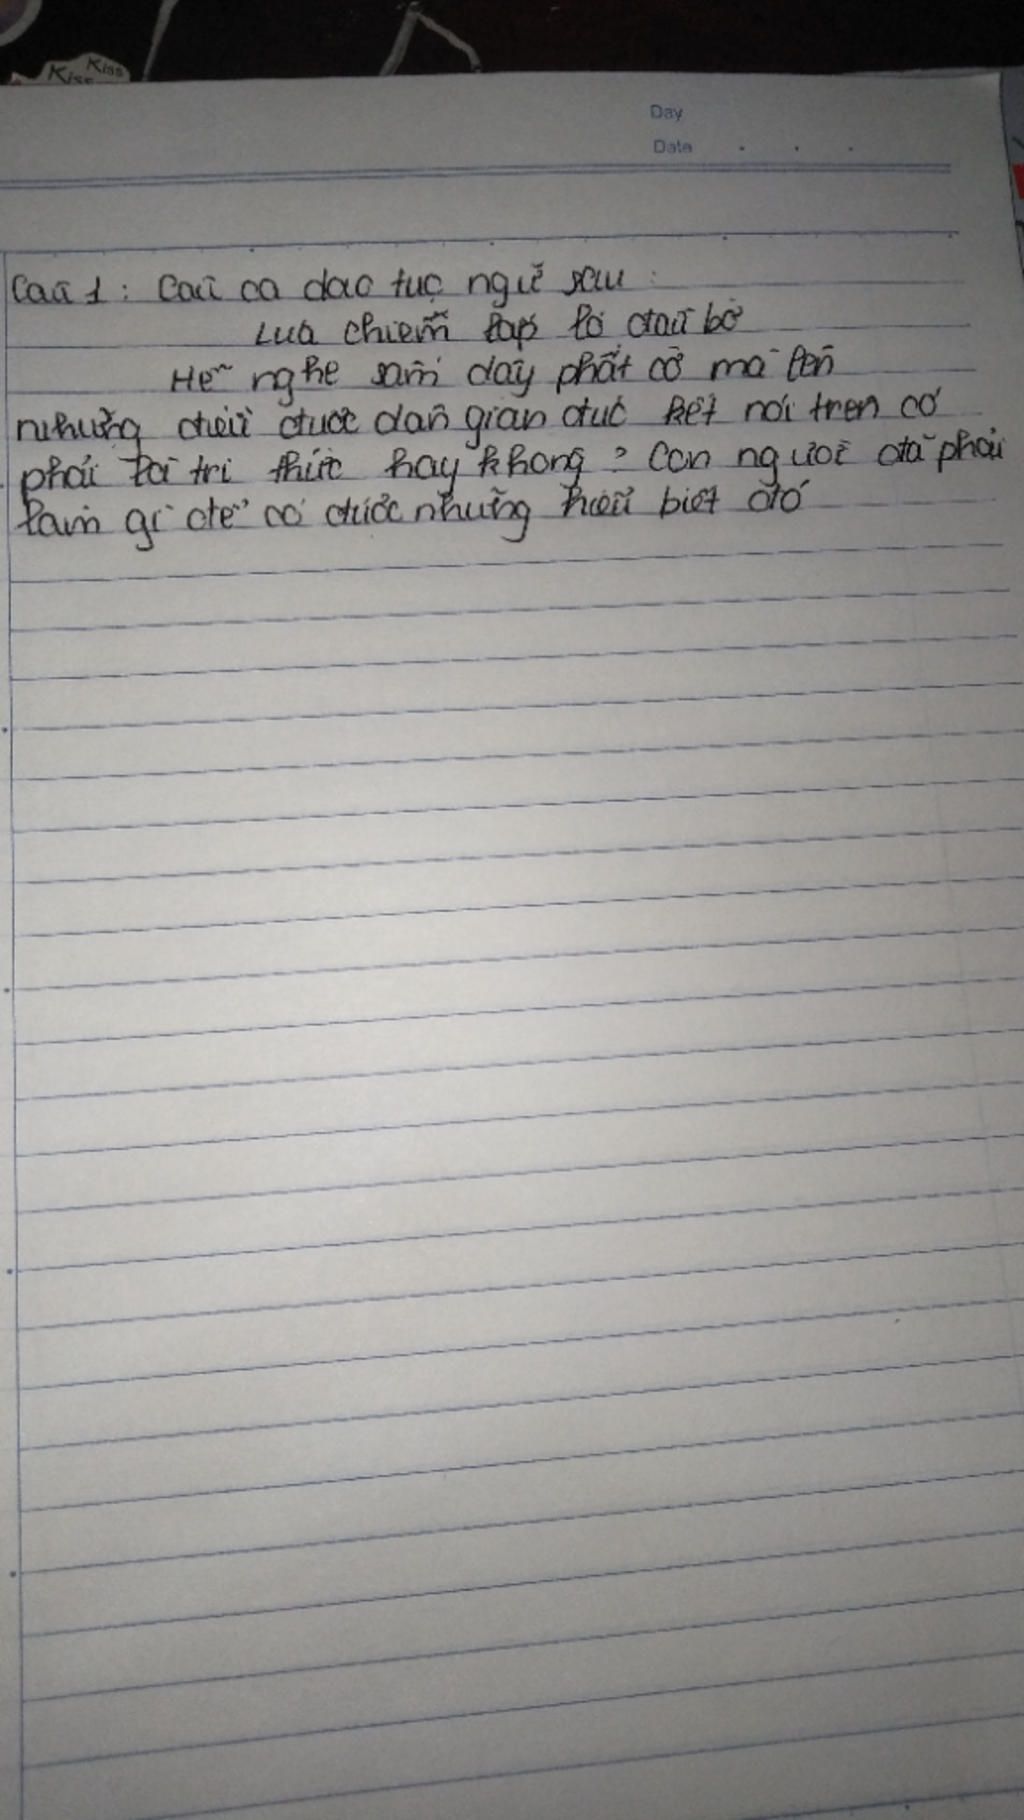 Kiss Kiss
Day
Date
Câu 1: Câu ca dao tục ngữ sau:
Lúa chiêm lấp ló đầu bờ
Hễ nghe sấm dậy phất cờ mà lên
những điều được dân gian đúc kết nói trên có
phải là tri thức hay không? Con người đã phải
làm gì để có được những hiểu biết đó